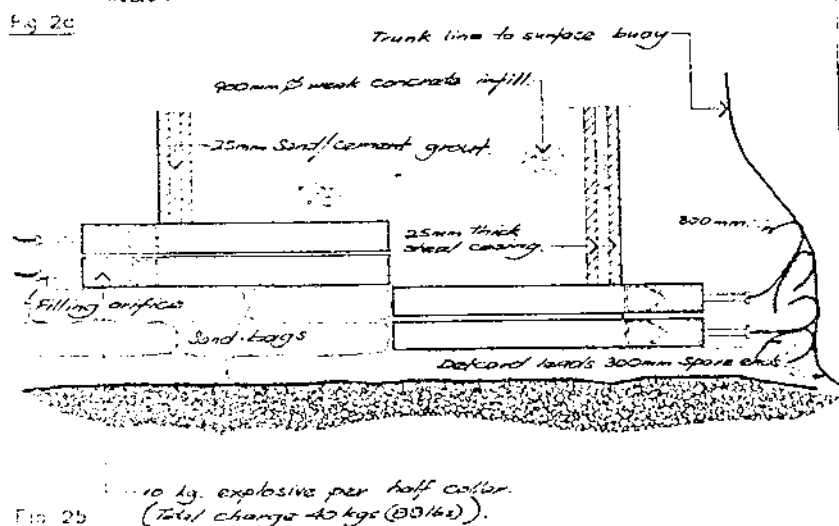 Fig 2c
Trunk line to surface buoy
900mm Ø weak concrete infill.
25mm Sand/cement grout.
300mm.
25mm thick
steel casing.
Filling orifice
Sand-bags
Detcord leads 300mm spare ends
10 kg. explosive per half collar.
Fig 2b
(Total charge 40 kgs (88 lbs)).